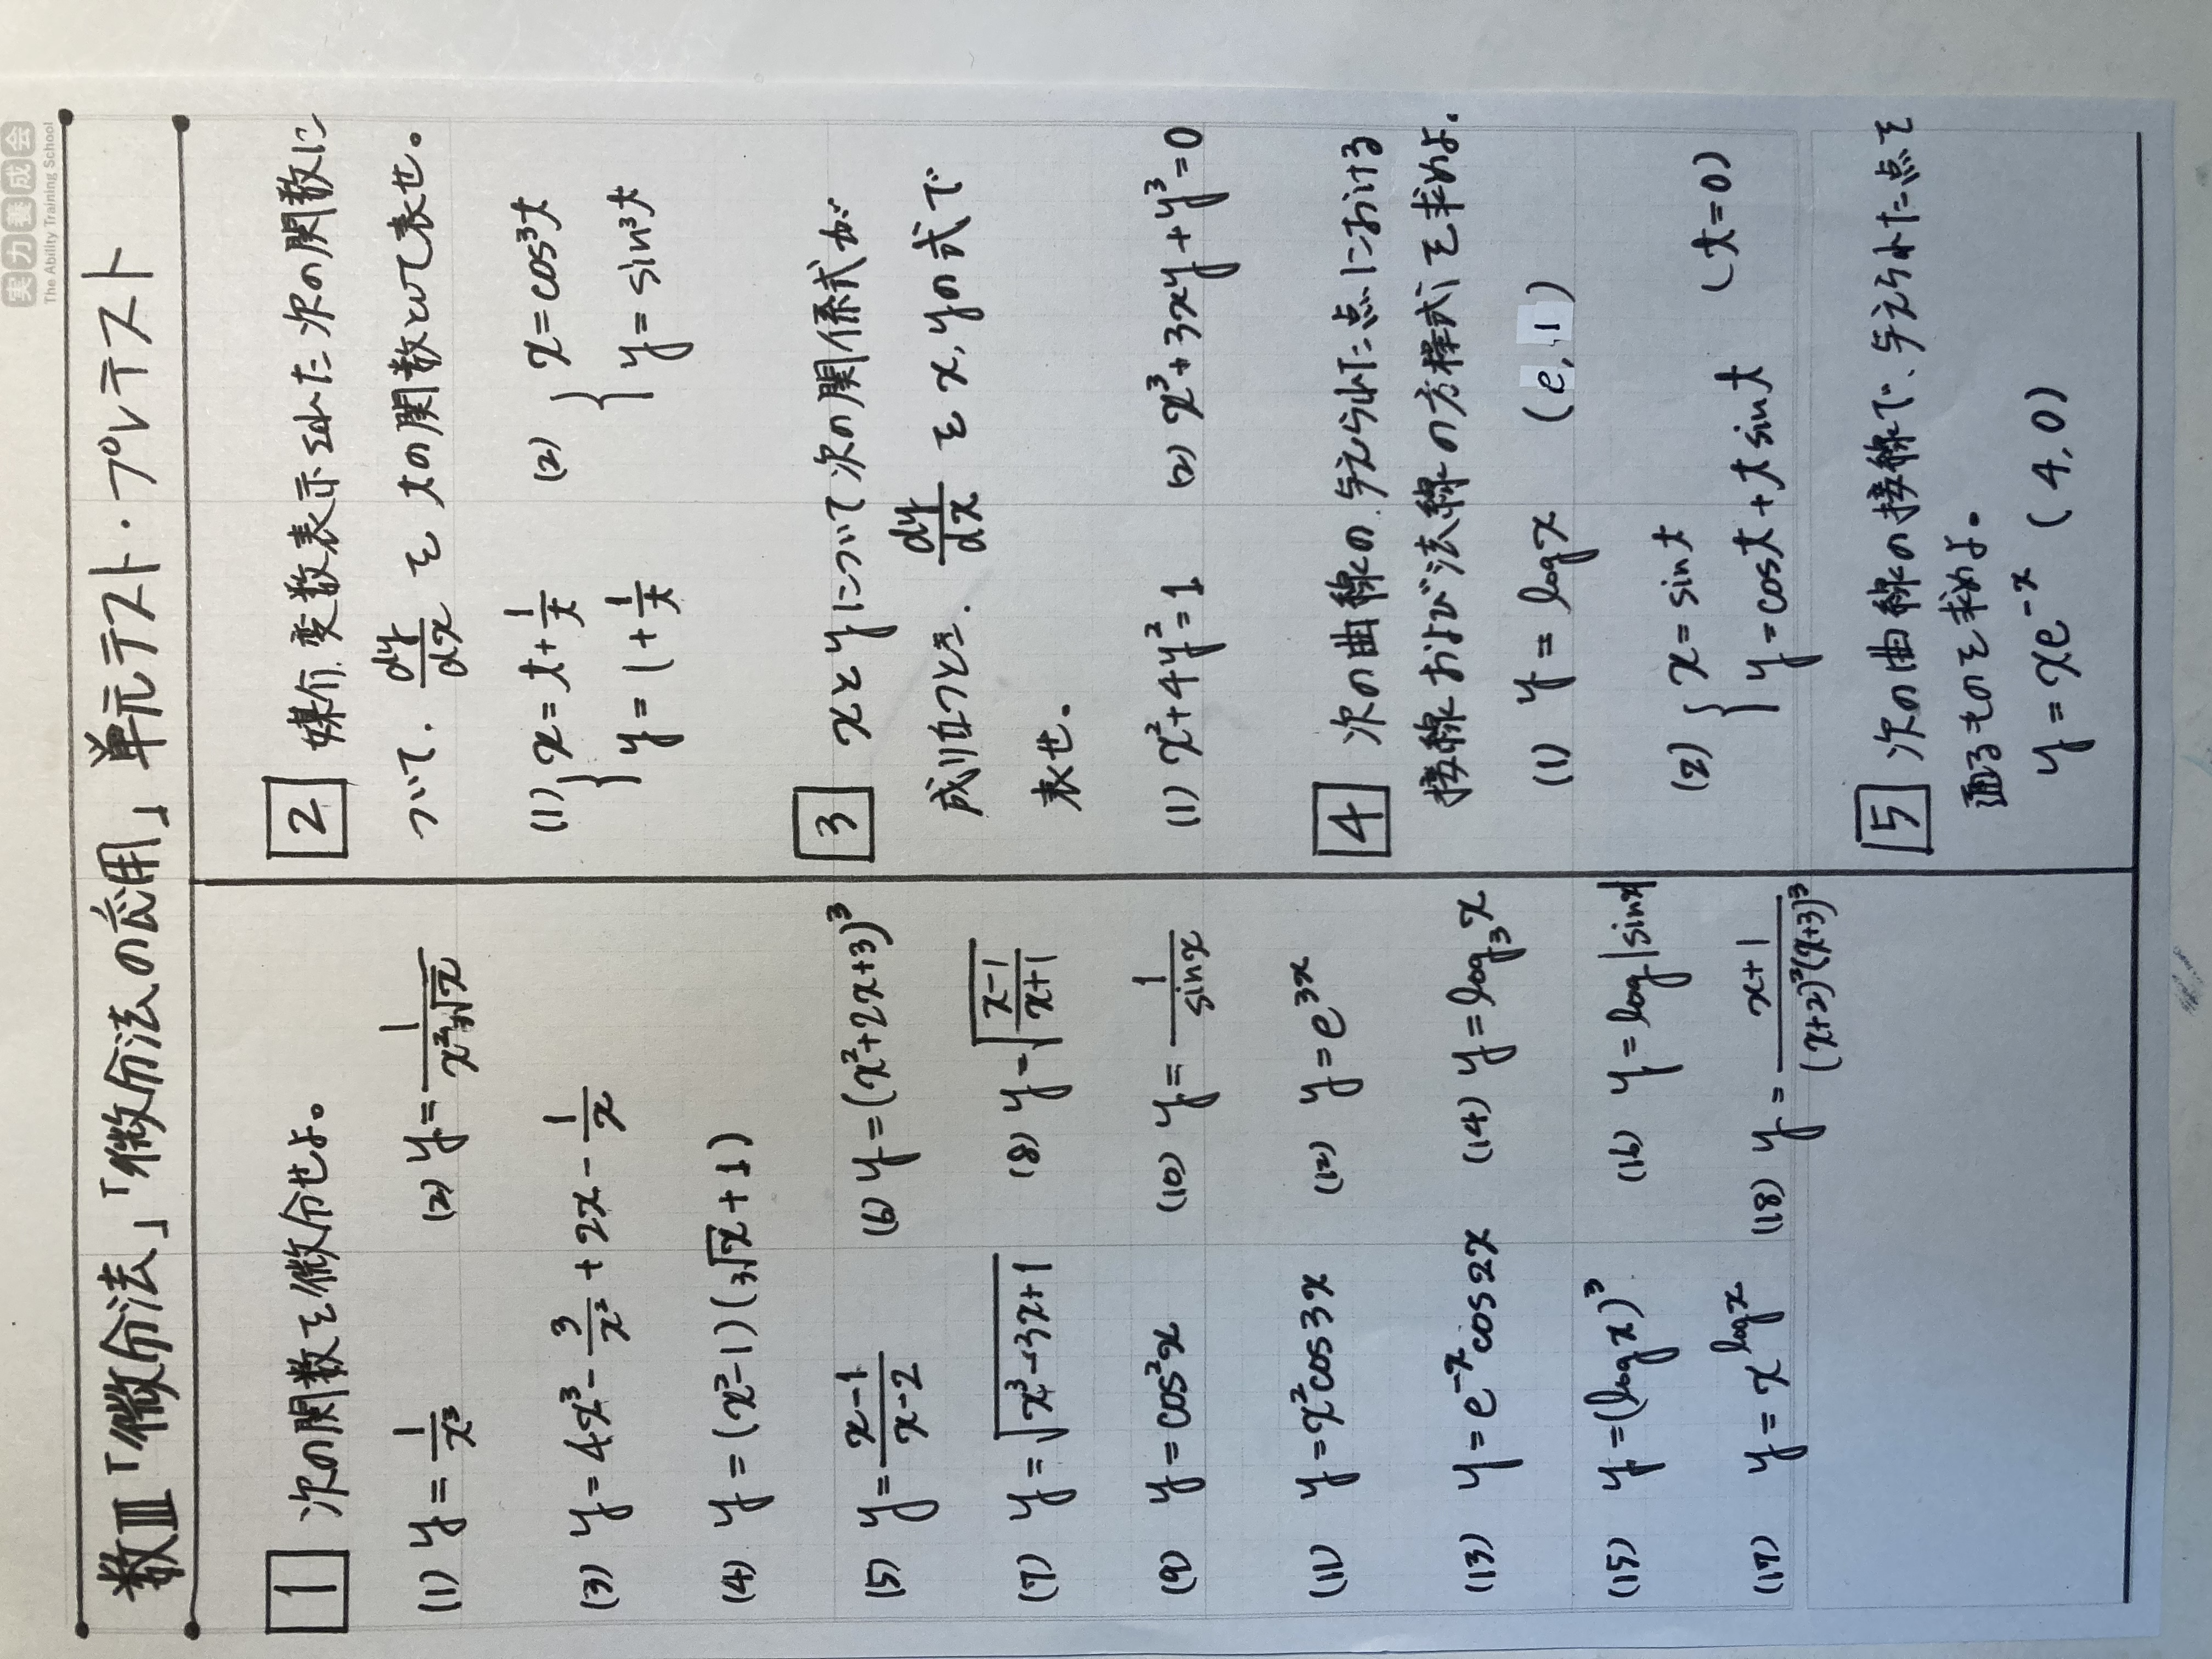 実力養成会
The Ability Training School
数Ⅲ「微分法」「微分法の応用」単元テスト・プレテスト
1 次の関数を微分せよ。
(1) y = 1/x³ (2) y = 1/(x²∜x)
(3) y = 4x³ - 3/x² + 2x - 1/x
(4) y = (x²-1)(³√x+1)
(5) y = (x-1)/(x-2) (6) y = (x²+2x+3)³
(7) y = √(x³-3x+1) (8) y = √((x-1)/(x+1))
(9) y = cos²x (10) y = 1/sinx
(11) y = x²cos3x (12) y = e³ˣ
(13) y = e⁻ˣcos2x (14) y = log₃x
(15) y = (logx)³ (16) y = log|sinx|
(17) y = x^logx (18) y = (x+1)/((x+2)²(x+3)³)
2 媒介変数表示された次の関数に
ついて、dy/dx を tの関数として表せ。
(1) { x = t + 1/t (2) { x = cos³t
y = 1 + 1/t y = sin³t
3 xとyについて次の関係式が
成り立つとき、dy/dx を x, yの式で
表せ。
(1) x²+4y²=1 (2) x³+3xy+y³=0
4 次の曲線の、与えられた点における
接線および法線の方程式を求めよ。
(1) y = logx (e, 1)
(2) { x = sint
y = cost + t sint (t=0)
5 次の曲線の接線で、与えられた点を
通るものを求めよ。
y = xe⁻ˣ (4, 0)